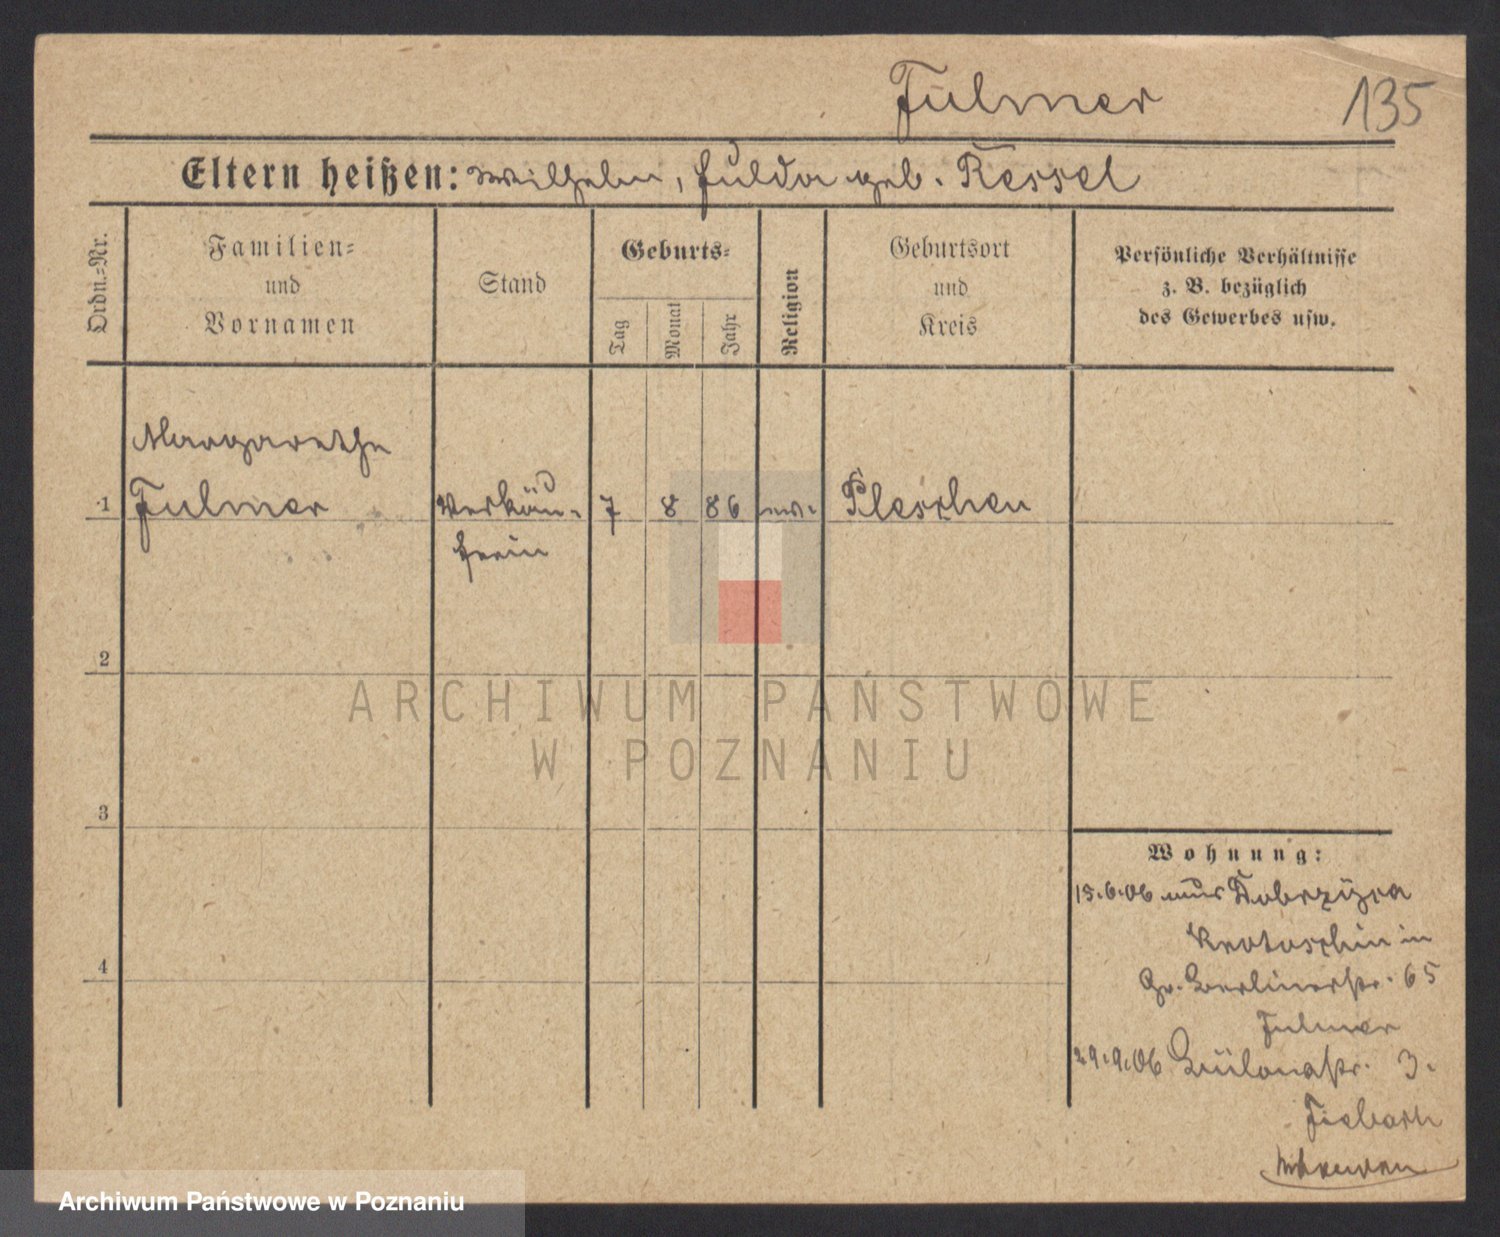 Fülmer
135
Eltern heißen: Wilhelm, Hulda geb. Kessel
Ordn.-Nr.
Familien-
und
Vornamen
Stand
Geburts-
Tag
Monat
Jahr
Religion
Geburtsort
und
Kreis
Persönliche Verhältnisse
z. B. bezüglich
des Gewerbes usw.
Margarethe
1 Fulmer Verkäu- 7 8 86 ev. Pleschen
ferin
2
3
4
Wohnung:
15.6.06 aus Dobrzyca
Krotoschin in
Gr. Berlinerstr. 65
Fulmer
29.9.06 Bülowstr. 3.
Fiebach
ARCHIWUM PAŃSTWOWE
W POZNANIU
Archiwum Państwowe w Poznaniu